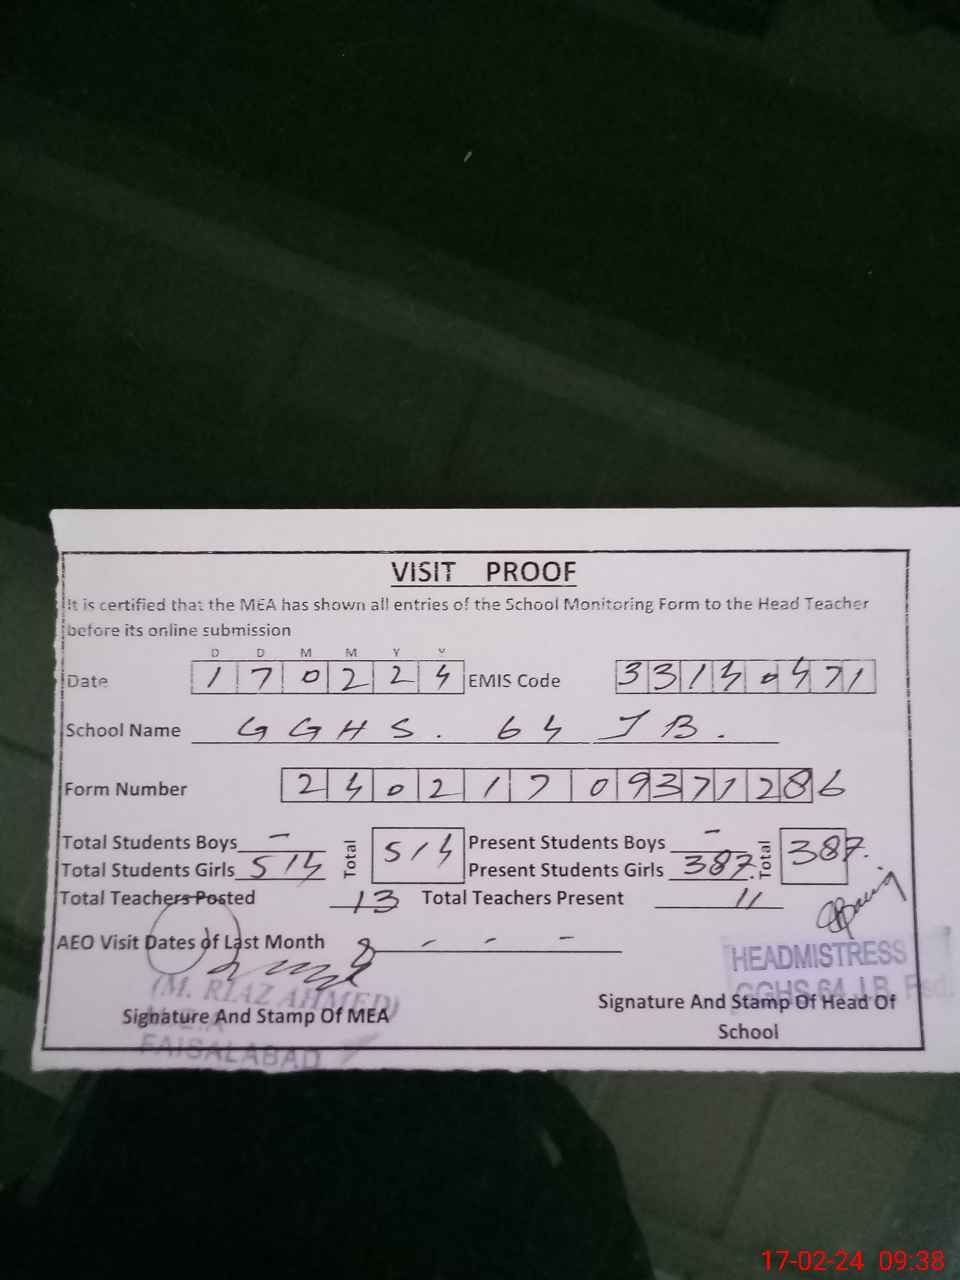 VISIT PROOF
It is certified that the MEA has shown all entries of the School Monitoring Form to the Head Teacher
before its online submission
D D M M Y Y
Date 1 7 0 2 2 4 EMIS Code 3 3 1 3 0 4 7 1
School Name GGHS. 64 JB.
Form Number 2 4 0 2 1 7 0 9 3 7 1 2 8 6
Total Students Boys - Total 514 Present Students Boys - Total 387.
Total Students Girls 514 Present Students Girls 387.
Total Teachers Posted 13 Total Teachers Present 11
AEO Visit Dates of Last Month - - -
HEADMISTRESS
GGHS 64 J.B. Fsd.
(M. RIAZ AHMED)
Signature And Stamp Of MEA
FAISALABAD
Signature And Stamp Of Head Of
School
17-02-24 09:38